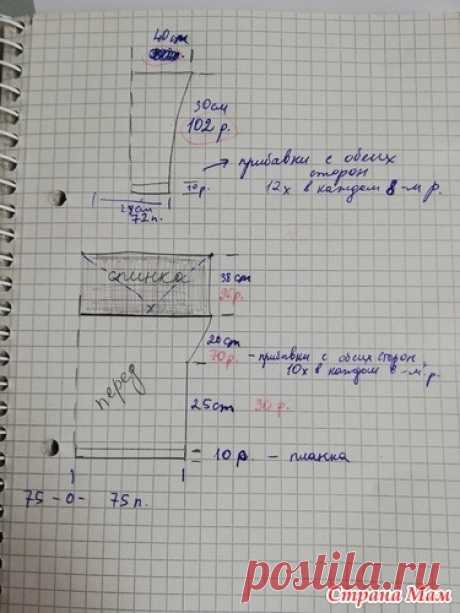 40 см
30 см
102 р.
прибавки с обеих
сторон
12х в каждом 8-м р.
10р.
28см
72п.
спинка
х
38 см
20 см
70р.
- прибавки с обеих сторон,
10х в каждом 8-м р.
перед
25 см 90 р.
10 р. - планка
75 -0- 75 п.
postila.ru
Страна Мам